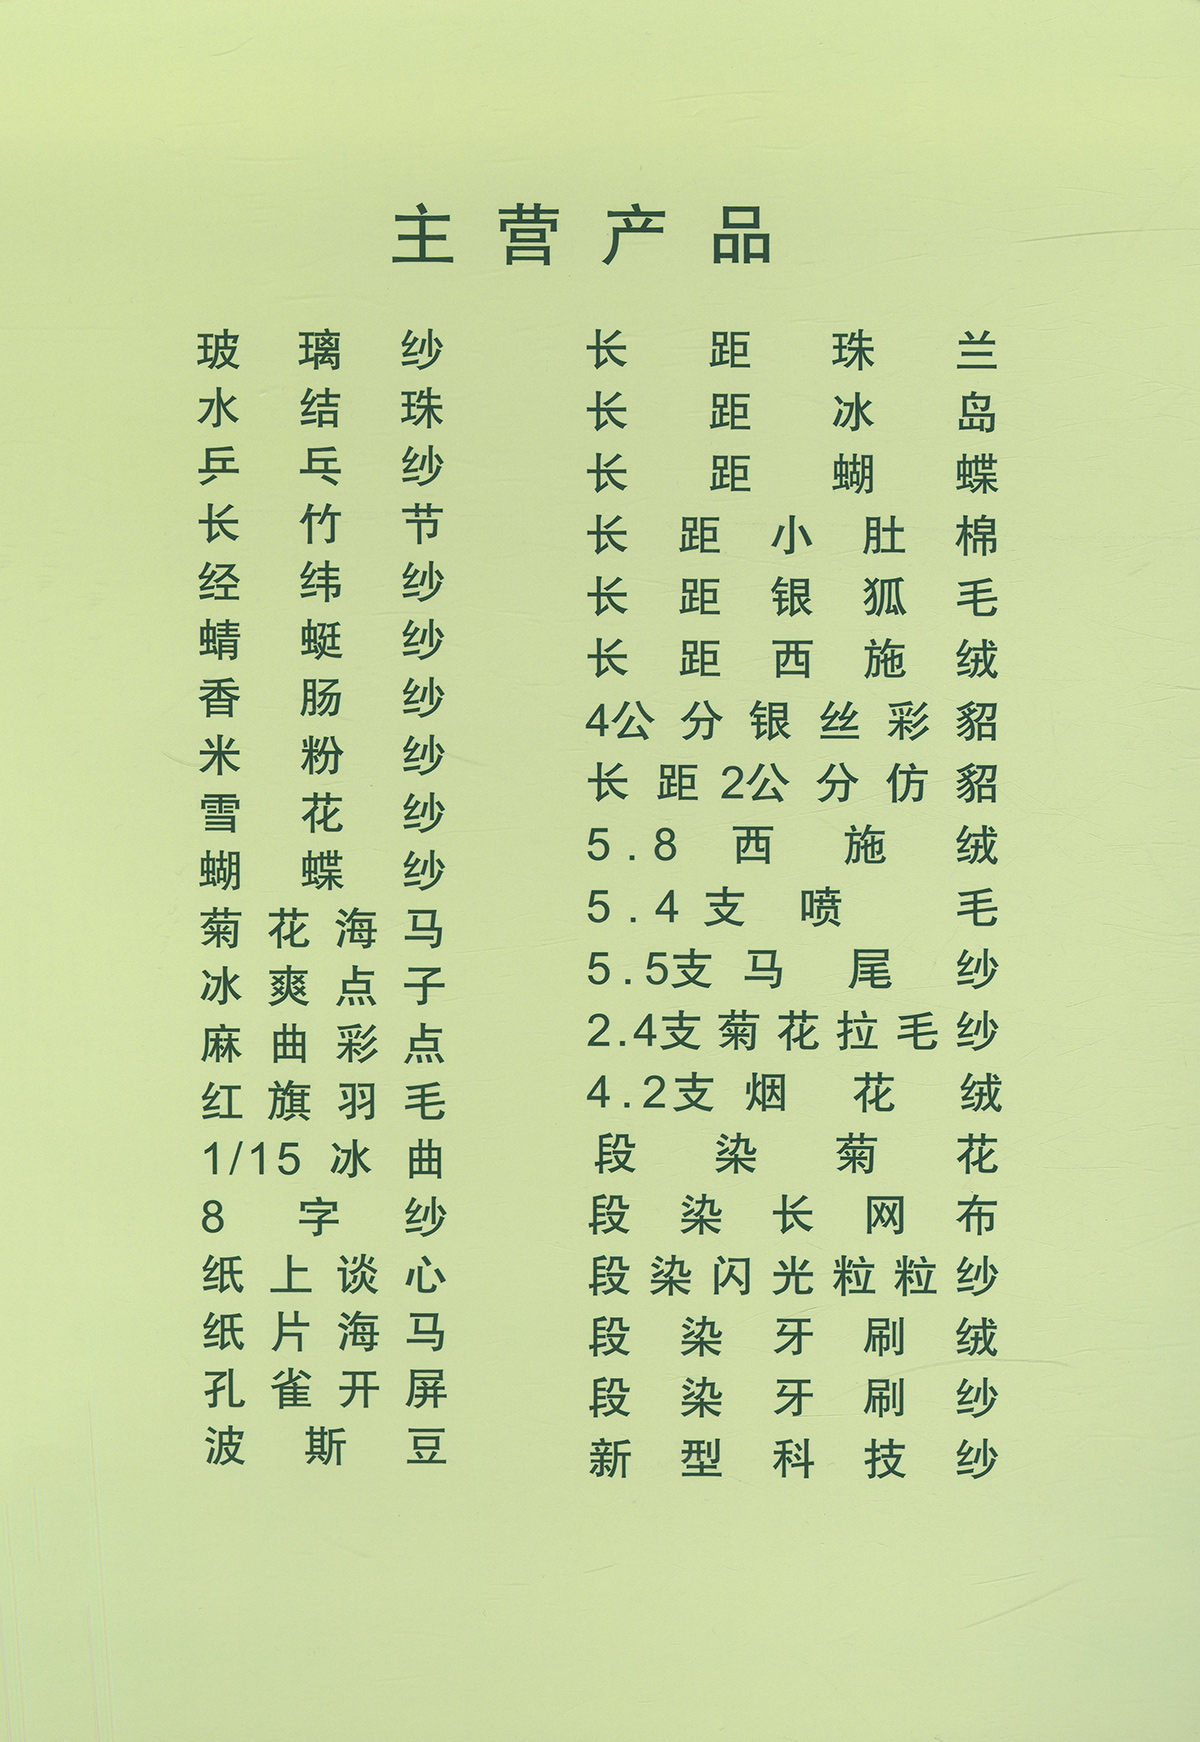 主营产品
玻璃纱
水结珠
乒乓纱
长竹节
经纬纱
蜻蜓纱
香肠纱
米粉纱
雪花纱
蝴蝶纱
菊花海马
冰爽点子
麻曲彩点
红旗羽毛
1/15冰曲
8字纱
纸上谈心
纸片海马
孔雀开屏
波斯豆
长距珠兰
长距冰岛
长距蝴蝶
长距小肚棉
长距银狐毛
长距西施绒
4公分银丝彩貂
长距2公分仿貂
5.8西施绒
5.4支喷毛
5.5支马尾纱
2.4支菊花拉毛纱
4.2支烟花绒
段染菊花
段染长网布
段染闪光粒粒纱
段染牙刷绒
段染牙刷纱
新型科技纱